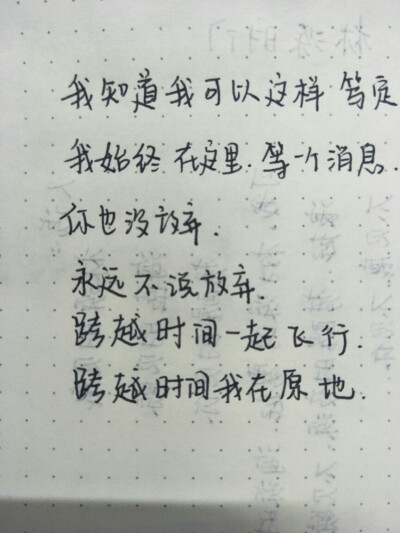 我知道我可以这样笃定
我始终在这里.等一个消息.
你也没放弃.
永远不说放弃.
跨越时间一起飞行.
跨越时间我在原地.